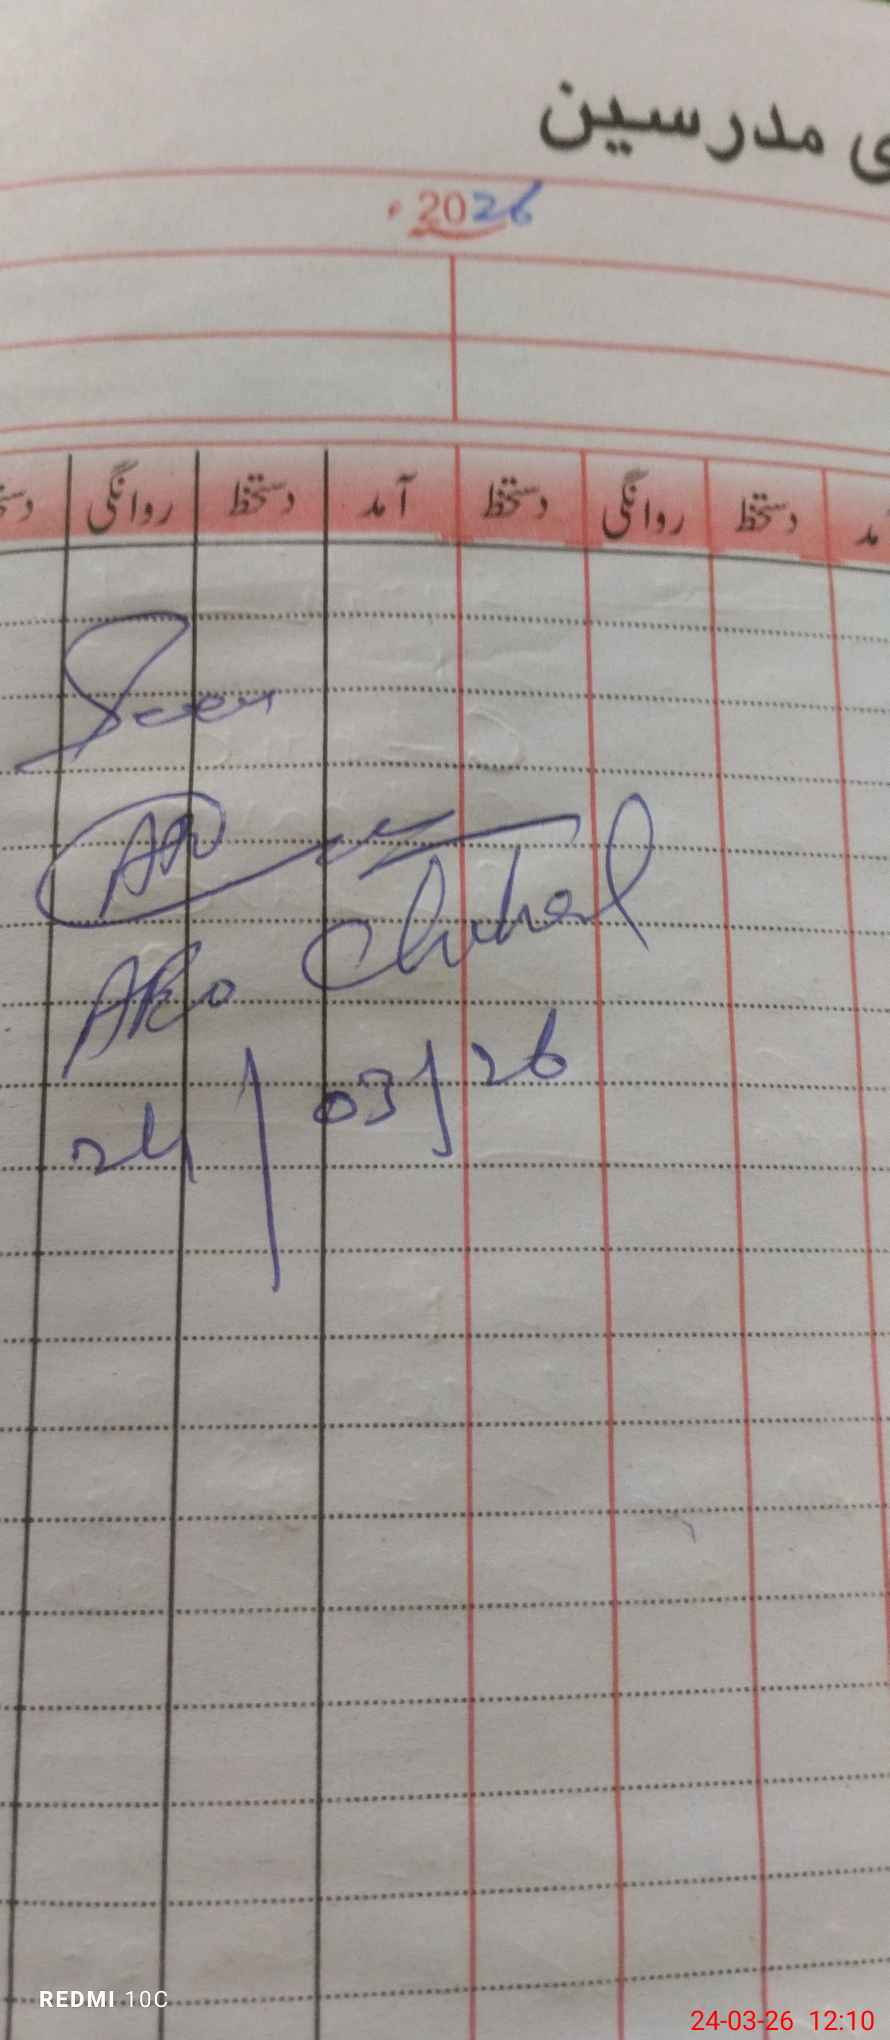 ی مدرسین
2026ء
آمد دستخط روانگی دستخط آمد دستخط روانگی دستخط
Seen
AKO Chitral
24/03/26
REDMI 10C
24-03-26 12:10